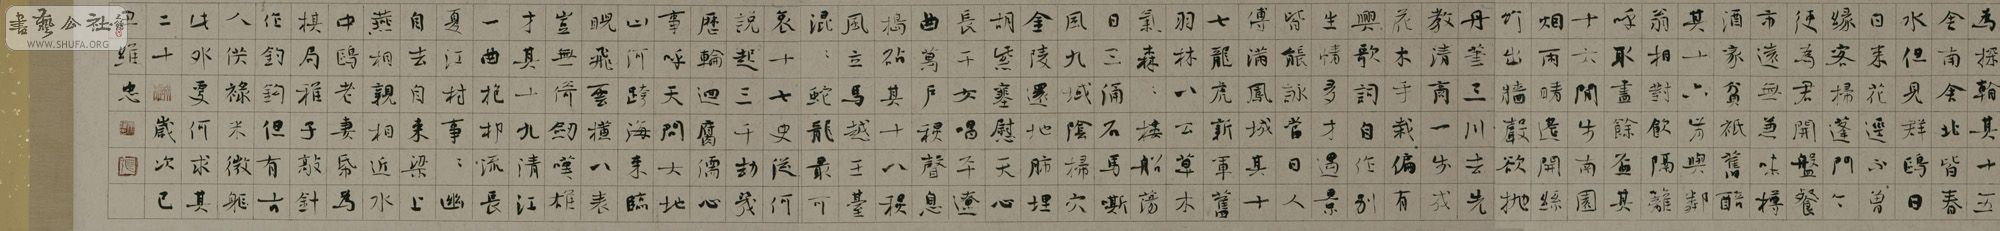 為探翰其十五
舍南舍北皆春
水但見群鷗日
日來花逕不曾
緣客掃蓬門々
便為君開盤餐
市遠無兼味樽
酒家貧祇舊醅
其十六肯與鄰
翁相對飲隔籬
呼取盡餘盃其
十六閒步南園
烟雨晴遣開絲
竹出牆聲欲拋
丹釜三川去先
教清商一步成
花木手栽偏有
興歌詞自作別
生情多才遇景
皆能詠當日人
傳滿鳳城其十
七龍虎新軍舊
羽林八公草木
氣森々樓船蕩
日三涌石馬嘶
風九域陰掃穴
金陵還地肺埋
胡紫塞慰天心
長干女唱平遼
曲萬戶秋聲息
搗砧其十八秋
風立馬越王臺
混々蛇龍最可
哀十七史從何
說起三千劫幾
歷輪迴腐儒心
事呼天問大地
山河跨海來臨
睨飛雲橫八表
豈無倚劍嘆雄
才其十九清江
一曲抱邨流長
夏江村事々幽
自去自來梁上
燕相親相近水
中鷗老妻帋為
棋局稚子敲針
作釣鉤但有古
人供祿米微軀
此外更何求其
二十 歲次己
畢維忠
書藝公社
WWW.SHUFA.ORG